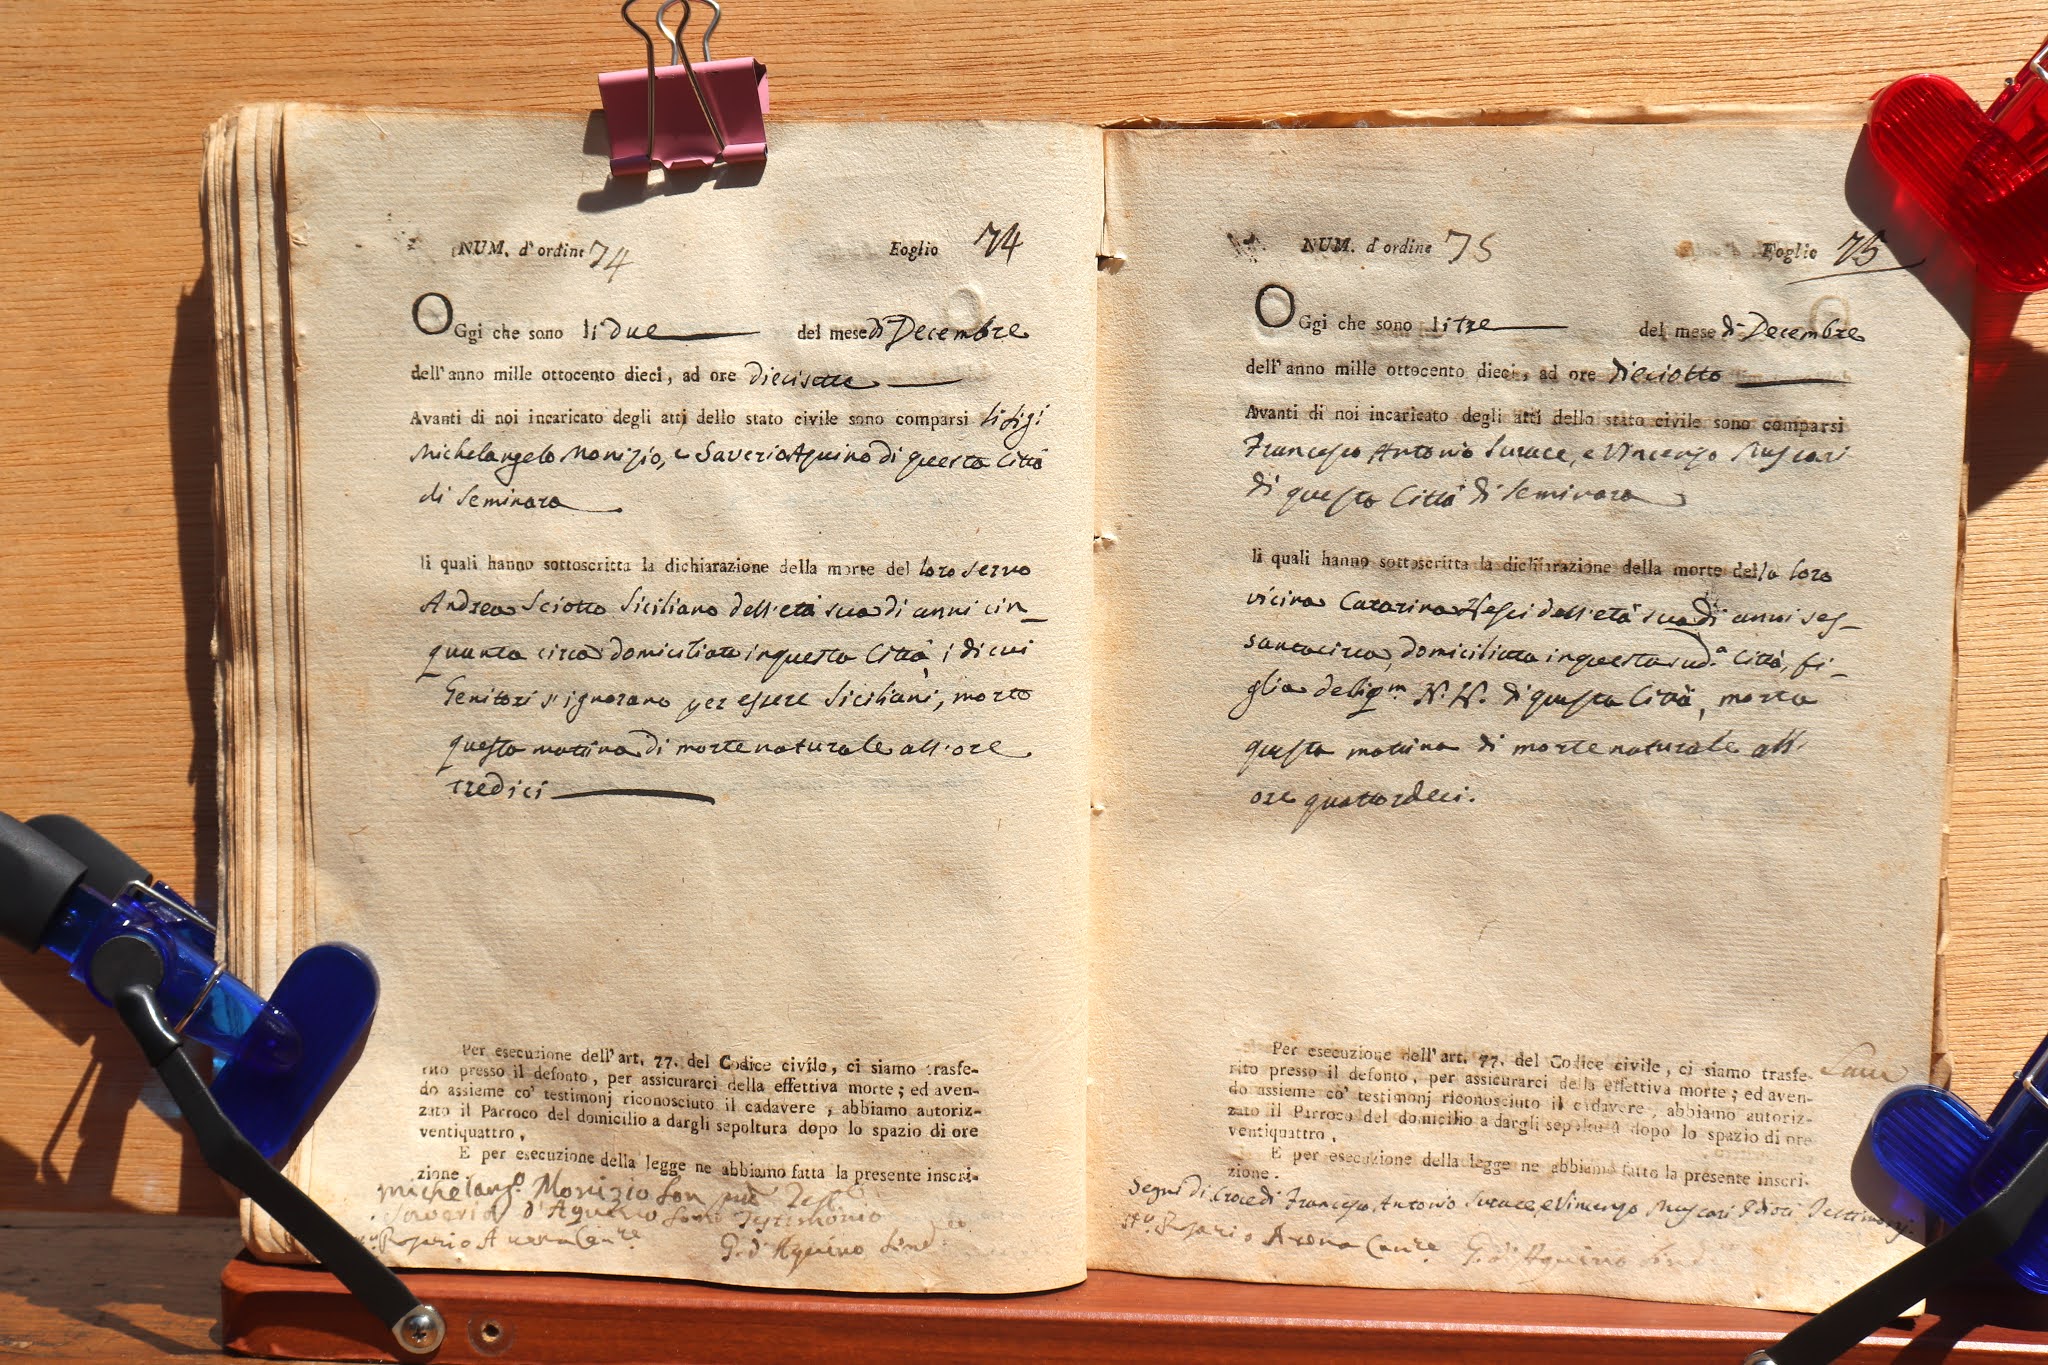 NUM. d'ordine 74 Foglio 74
OGgi che sono li due del mese di Decembre
dell'anno mille ottocento dieci, ad ore diecisette
Avanti di noi incaricato degli atti dello stato civile sono comparsi li sigi
Michelangelo Morizio, e Saverio Aquino di questa Città
di Seminara
li quali hanno sottoscritta la dichiarazione della morte del loro servo
Andrea Sciotto Siciliano dell'età sua di anni cin_
quanta circa domiciliato in questa Città, i di cui
Genitori s'ignorano per essere Siciliani, morto
questa mattina di morte naturale all'ore
tredici
Per esecuzione dell'art. 77. del Codice civile, ci siamo trasfe-
rito presso il defonto, per assicurarci della effettiva morte; ed aven-
do assieme co' testimonj riconosciuto il cadavere, abbiamo autoriz-
zato il Parroco del domicilio a dargli sepoltura dopo lo spazio di ore
ventiquattro,
E per esecuzione della legge ne abbiamo fatta la presente inscri-
zione.
Michelang.o Morizio son
Saverio d'Aquino sono Testimonio
Rosario Arena Canre G. d'Aquino Sind.
NUM. d'ordine 75 Foglio 75
OGgi che sono li tre del mese di Decembre
dell'anno mille ottocento dieci, ad ore dieciotto
Avanti di noi incaricato degli atti dello stato civile sono comparsi
Francesco Antonio Surace, e Vincenzo Muscari
di questa Città di Seminara
li quali hanno sottoscritta la dichiarazione della morte della loro
vicina Catarina Nesci dell'età sua di anni ses_
santa circa, domiciliata in questa sud.a Città, fi_
glia delli qm N. N. di questa Città, morta
questa mattina di morte naturale all'
ore quattordeci.
Per esecuzione dell'art. 77. del Codice civile, ci siamo trasfe-
rito presso il defonto, per assicurarci della effettiva morte; ed aven-
do assieme co' testimonj riconosciuto il cadavere, abbiamo autoriz-
zato il Parroco del domicilio a dargli sepoltura dopo lo spazio di ore
ventiquattro,
E per esecuzione della legge ne abbiamo fatto la presente inscri-
zione.
Segni di Croce di Francesco Antonio Surace, e Vincenzo Muscari Idioti Testimonj.
Rosario Arena Canre G. d'Aquino Sind.